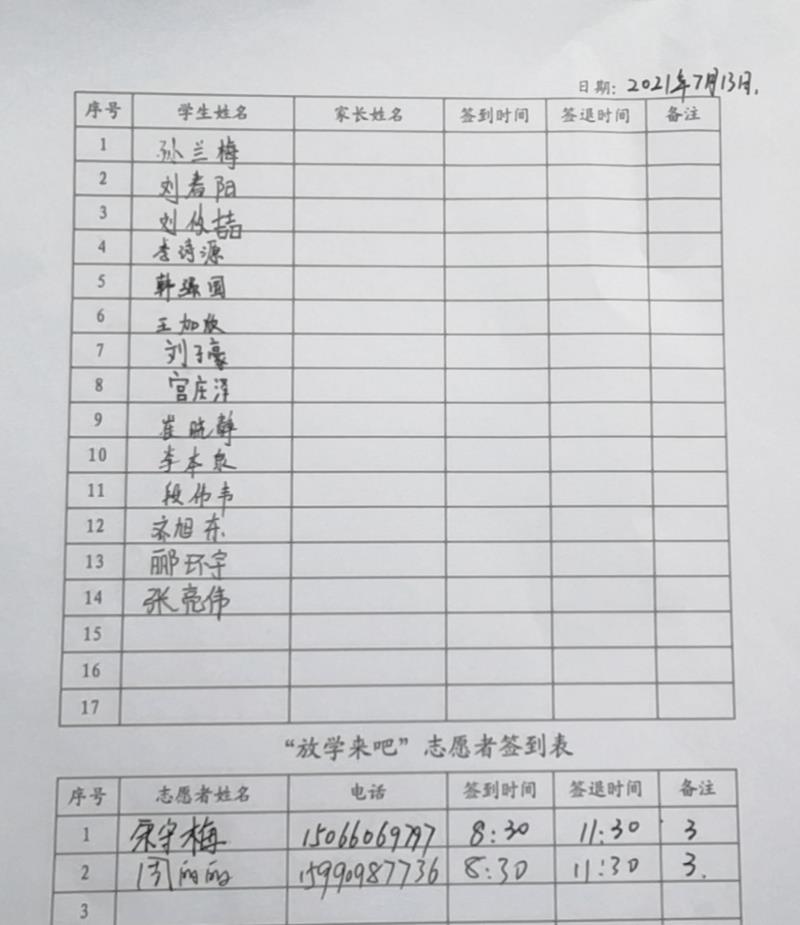 日期: 2021年7月13日.
序号 学生姓名 家长姓名 签到时间 签退时间 备注
1 孙兰梅
2 刘春阳
3 刘俊喆
4 李诗源
5 韩强国
6 王加放
7 刘子豪
8 宫庄泽
9 崔晓静
10 李本泉
11 段伟韦
12 齐旭东
13 郦环宇
14 张亮伟
15
16
17
“放学来吧”志愿者签到表
序号 志愿者姓名 电话 签到时间 签退时间 备注
1 宋守梅 15066069797 8:30 11:30 3
2 周 15990987736 8:30 11:30 3.
3